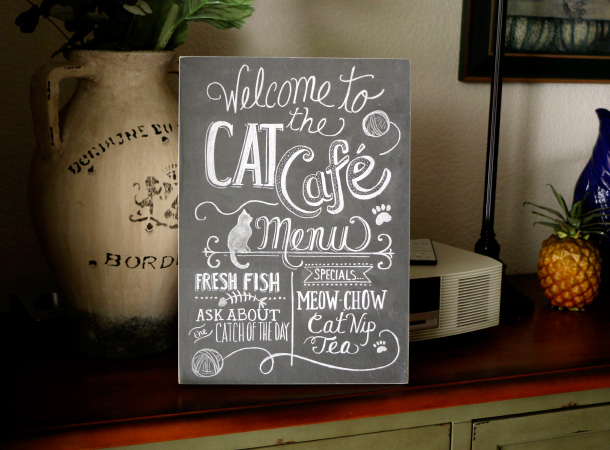 Welcome to
the
CAT
Café
Menu
FRESH FISH
ASK ABOUT
the CATCH OF THE DAY
SPECIALS...
MEOW CHOW
Cat Nip
Tea
BORD